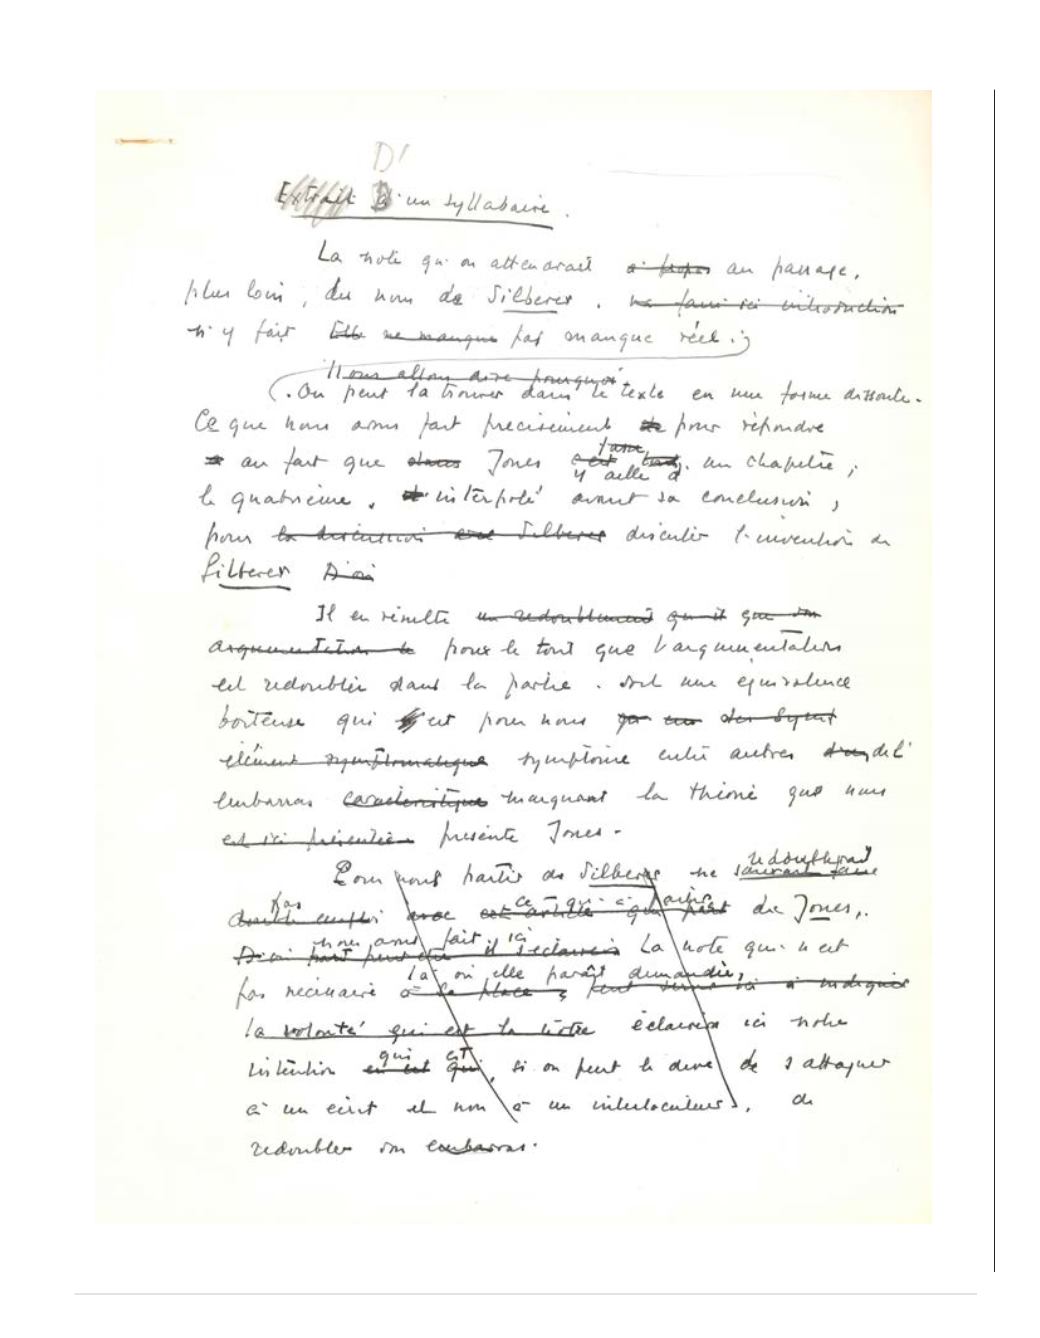 D'
Extrait D'un syllabaire.
La note qu'on attendrait à propos au passage,
plus loin, du nom de Silberer. ne fait ici introduction
n'y fait Elle ne manque pas manque réel.
Nous allons dire pourquoi
On peut la trouver dans le texte en une forme dissoute.
Ce que nous avons fait précisément de pour répondre
au fait que dans Jones
fasse
c'est tout un chapitre,
y aille d'
le quatrième, interpolé avant sa conclusion,
pour la discussion avec Silberer discuter l'invention de
Silberer D'où
Il en résulte un redoublement qu'il que son
argumentation le pour le tout que l'argumentation
est redoublée dans la partie. soit une équivalence
boiteuse qui est pour nous
élément symptomatique symptôme entre autres de l'
embarras caractéristique marquant la théorie que nous
est ici présentée présente Jones.
Pour nous partir de Silberer ne saurait faire
redoubler
pas
double emploi avec cet article qui part de Jones,
ce qui à partir
nous avons fait ici
D'où peut être il s'éclaircir La note qui n'est
là où elle paraît demandée,
pas nécessaire à sa place, peut servir ici à indiquer
la volonté qui est la nôtre éclaircir ici notre
qui est
intention en est qui, si on peut le dire de s'attaquer
à un écrit et non à un interlocuteur, de
redoubler son embarras.